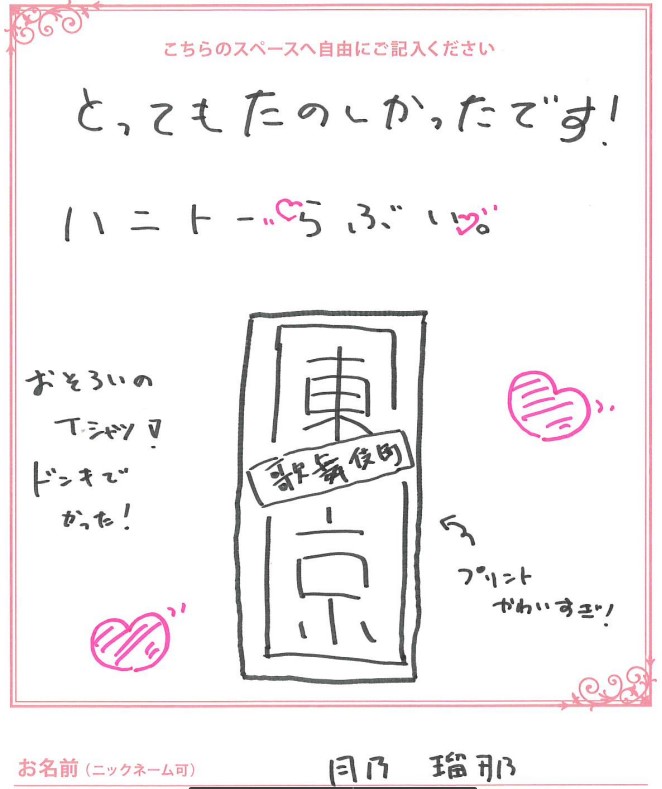 こちらのスペースへ自由にご記入ください
とってもたのしかったです!
ハニトーらぶい。
おそろいの
Tシャツ!
ドンキで
かった!
東
歌舞伎町
京
プリント
かわいすぎ!
お名前(ニックネーム可)
月乃 瑠那